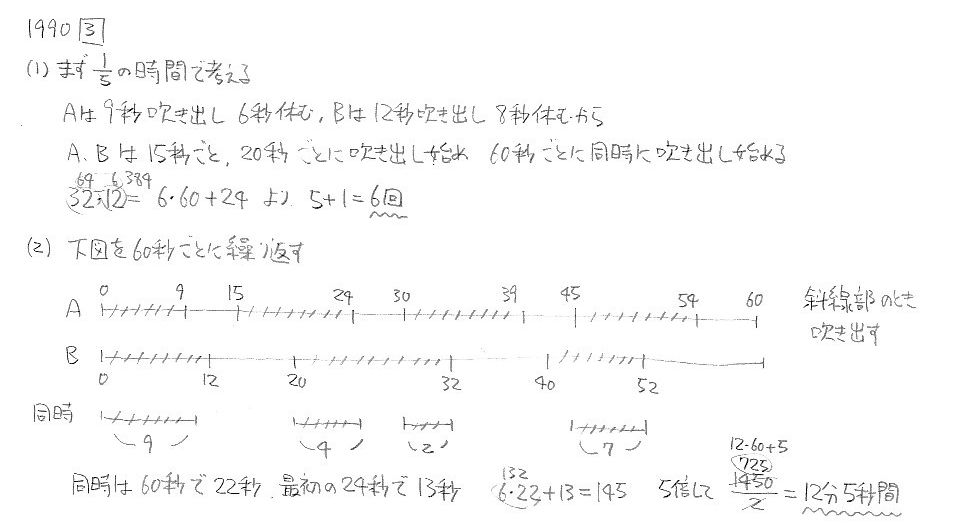 1990 3
(1) まず 1/5 の時間で考える
Aは9秒吹き出し 6秒休む, Bは12秒吹き出し 8秒休むから
A、Bは15秒ごと, 20秒ごとに吹き出し始め 60秒ごとに同時に吹き出し始める
64 6 384
32:12 = 6・60+24 より 5+1=6回
(2) 下図を60秒ごとに繰り返す
0 9 15 24 30 39 45 54 60
A
斜線部のとき
吹き出す
B
0 12 20 32 40 52
同時
9 4 2 7
12・60+5
132 725
同時は60秒で22秒、最初の24秒で13秒 6・22+13=145 5倍して 1450/2 = 12分5秒間